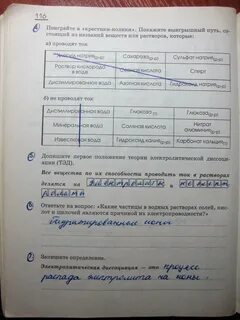 116
Поиграйте в «крестики-нолики». Покажите выигрышный путь, со-
стоящий из названий веществ или растворов, которые:
а) проводят ток
Хлорид натрия(р-р) Сахароза(р-р) Сульфат натрия(р-р)
Раствор кислорода в воде Соляная кислота Спирт
Дистиллированная вода Азотная кислота Гидроксид натрия(р-р)
б) не проводят ток
Дистиллированная вода Глюкоза(р-р) Глюкоза(т)
Минеральная вода Соляная кислота Нитрат алюминия(р-р)
Известковая вода Гидроксид натрия(р-р) Карбонат кальция(т)
Допишите первое положение теории электролитической диссоциа-
ции (ТЭД).
Все вещества по их способности проводить ток в растворах
делятся на электролиты и неэлект
ролиты
Ответьте на вопрос: «Какие частицы в водных растворах солей, кис-
лот и щелочей являются причиной их электропроводности?»
Гидратированные ионы
Запишите определение.
Электролитическая диссоциация — это процесс
распада электролита на ионы.